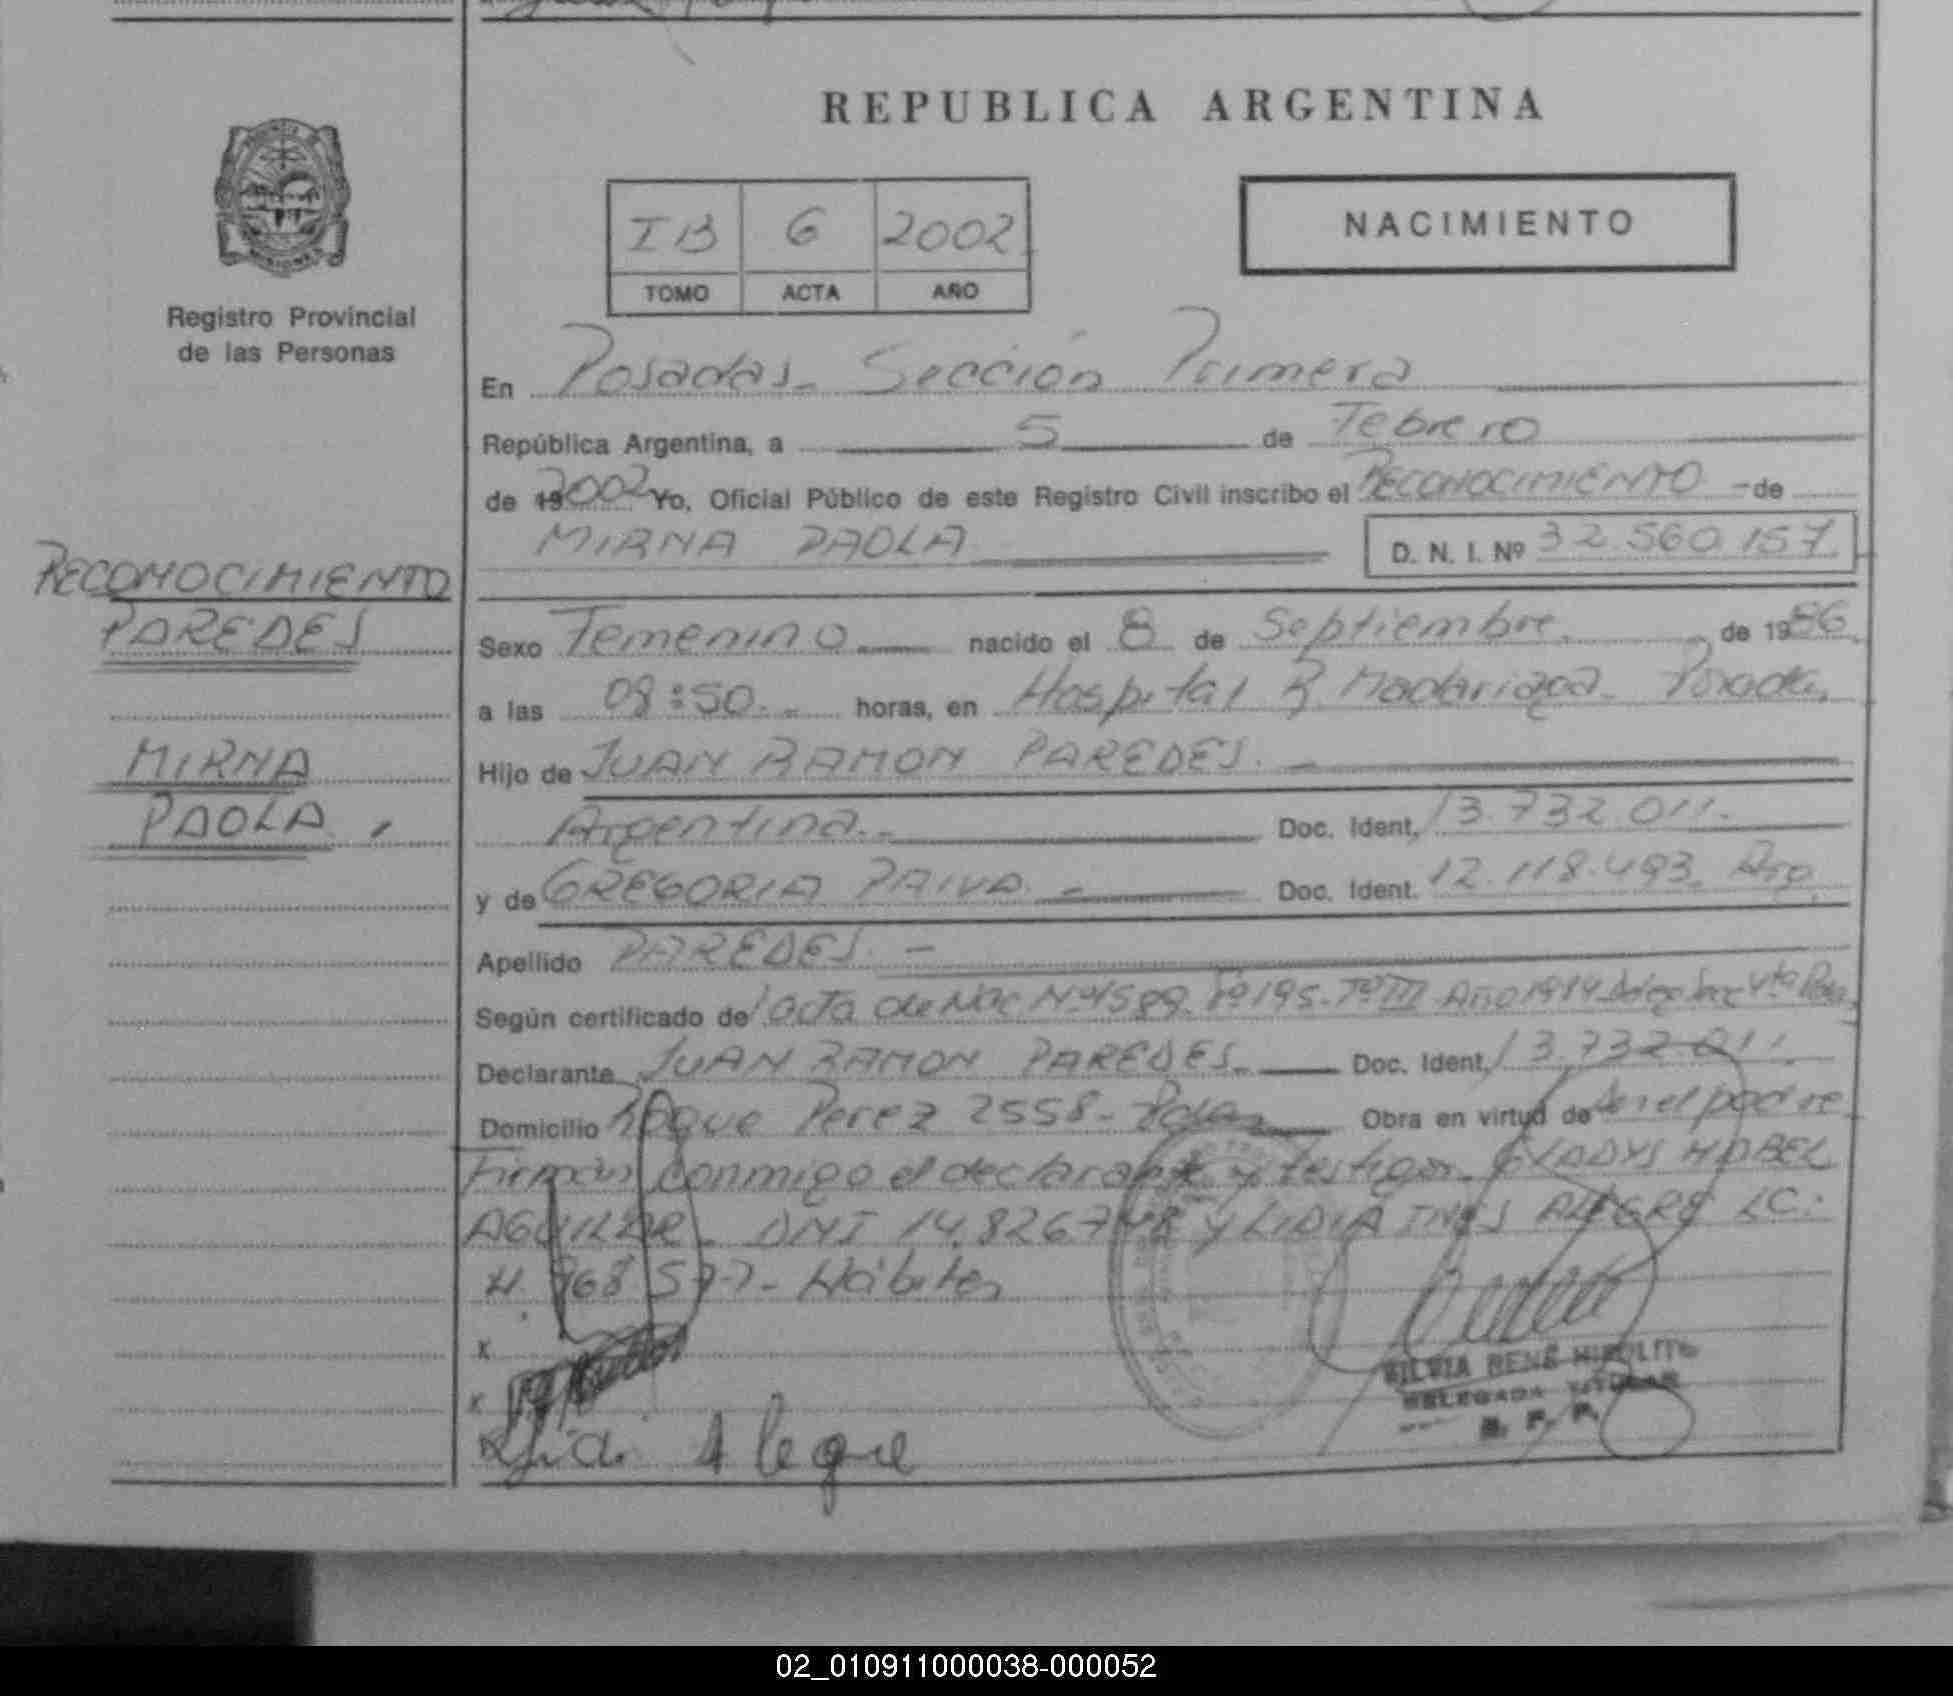 REPUBLICA ARGENTINA
IB 6 2002
TOMO ACTA AÑO
NACIMIENTO
Registro Provincial
de las Personas
En Posadas - Sección Primera
República Argentina, a 5 de Febrero
de 19 2002 Yo, Oficial Público de este Registro Civil inscribo el RECONOCIMIENTO - de
MIRNA PAOLA D. N. I. Nº 32.560.157
RECONOCIMIENTO
PAREDES
MIRNA
PAOLA.
Sexo Femenino nacido el 8 de Septiembre de 1986
a las 08:50 horas, en Hospital R Madariaga - Posadas
Hijo de JUAN RAMON PAREDES. -
Argentina. - Doc. Ident. 13.732.011.
y de GREGORIA PAIVA - Doc. Ident. 12.118.493 - Arg.
Apellido PAREDES. -
Según certificado de Acta de Nac Nº 1589 Fº 195 - Tº III Año
Declarante JUAN RAMON PAREDES. Doc. Ident. 13.732.011.
Domicilio Roque Perez 2558 - Pdas Obra en virtud de ser el padre
Firman conmigo el declarante y testigos - GLADYS MABEL
AGUILAR - DNI 14.826.748 y LIDIA INES ALEGRE LC:
4.968.577 - Hábiles
x
x
Lidia Alegre
SILVIA RENE HIPOLITO
DELEGADA TITULAR
R. P. P.
02_010911000038-000052